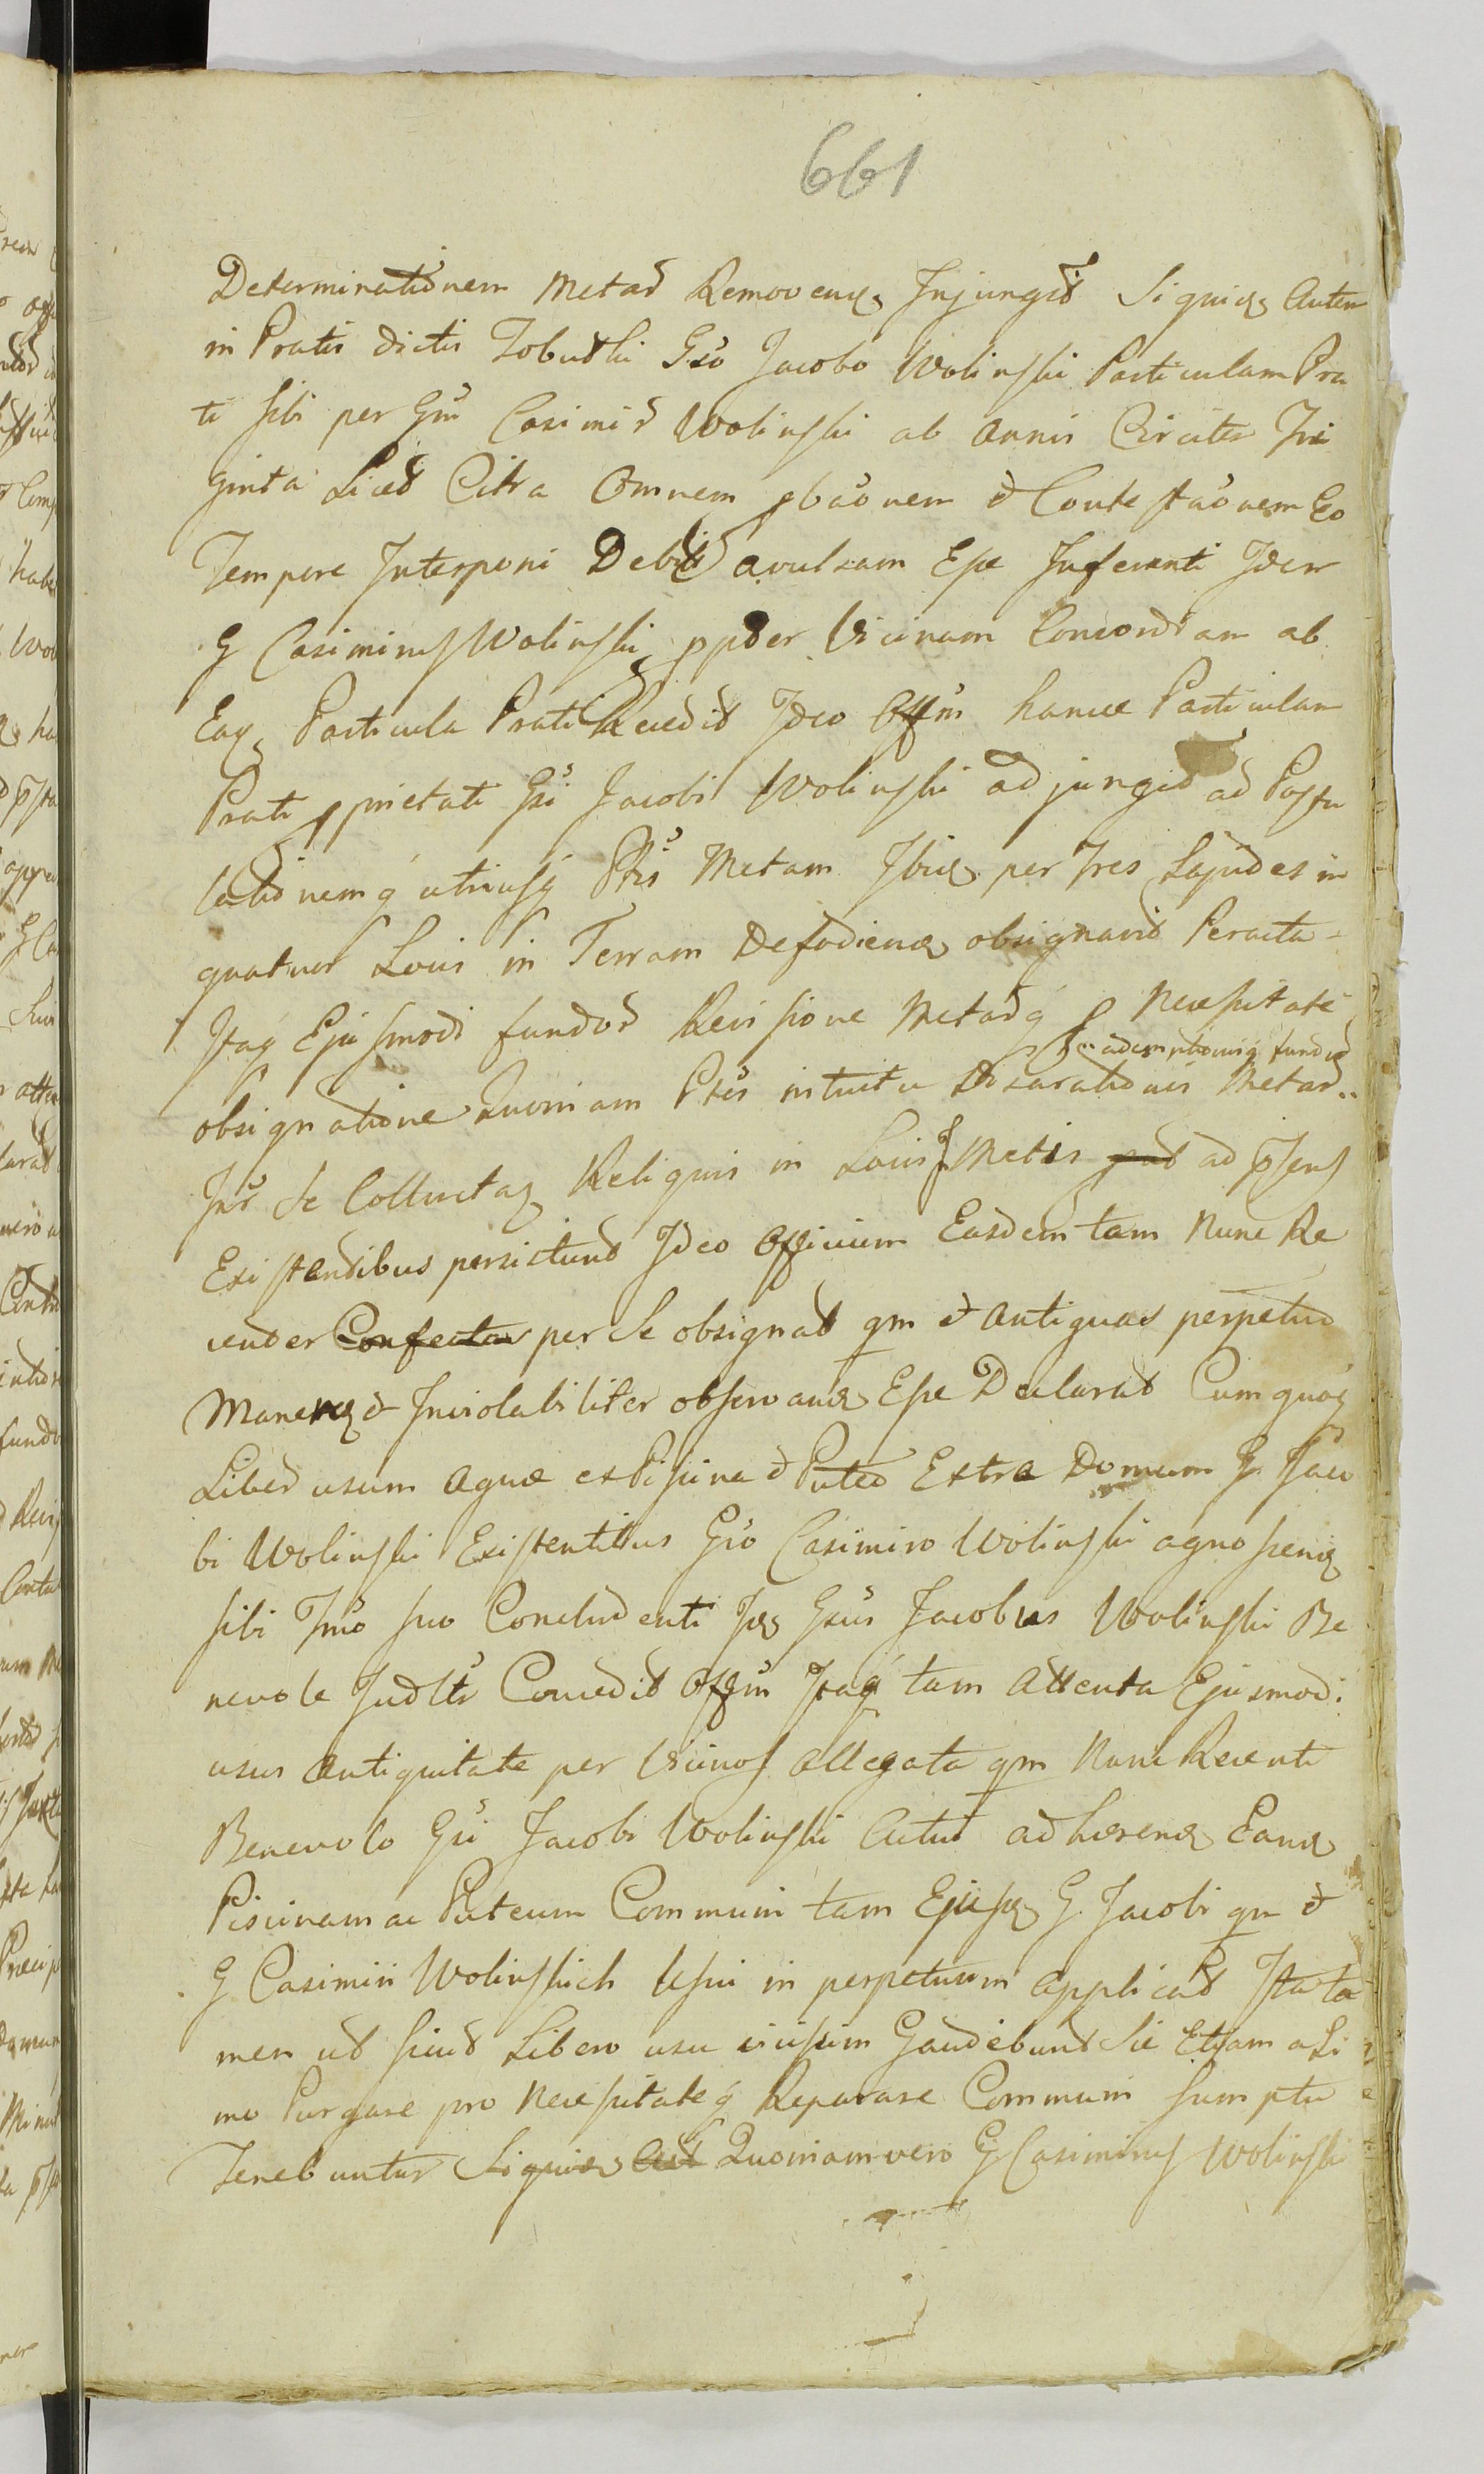 661
Determinationem Metar Removens Injungit Siquid Autem
in Pratis dictis Gso Jacobo Wolinski Particulam Pra
ti sibi per Gm Casimir Wolinski ab annis Circiter Tri
ginta Licet Citra Omnem pbaonem et Contestaonem Eo
Tempore Interponi Debit avulsam Esse Inferenti Idem
G Casimirus Wolinski ppter Vicinam Concordiam ab
Eaq Particula Prati Recedit Ideo Offm hance Particulam
Prati pprietati Gsi Jacobi Wolinski adjungit ad Postu
lationemq utriusq Ptis Metam Ibid per Tres Lapides in
quatuor Locis in Terram Defodiend obsignavit Peracta
Itaq Ejusmodi fundor Revisione Metarq p Necessitate
ademptionisq fundi
obsignatione Quoniam Ptes intuitu Metar
Inr Se Collimitan Reliquis in Locis Metis ad psens
Existentibus persistunt Ideo Officium Easdem tam Nunc Re
center Confectas per Se obsignat qm et antiquas perpetuo
Manere et Inviolabiliter observand Esse Declarat Cumquoq
Liber usum aquae ex Piscina et Puteo Extra Domum G Jaco
bi Wolinski Existentibus Gso Casimiro Wolinski agnoscend
sibi Tmo suo Concludenti Id Gsus Jacobus Wolinski Be
nevole Judltr Concedit Offm Itaq tam Attenta Ejusmodi
usus Antiquitate per Vicinos allegata qm Nunc Recenti
Benevolo Gsi Jacobi Wolinski Actui adhaerend Eand
Piscinam ac Puteum Communi tam Ejusd G. Jacobi qm et
G Casimiri Wolinskich Usui in perpetuum applicat Ita ta
men ut sicut Libero usu vicissim Gaudebunt Sic Etiam a Li
mo Purgare pro Necessitateq Reparare Communi Sumptu
Tenebuntur Siquid Aut Quoniam vero G Casimirus Wolinski